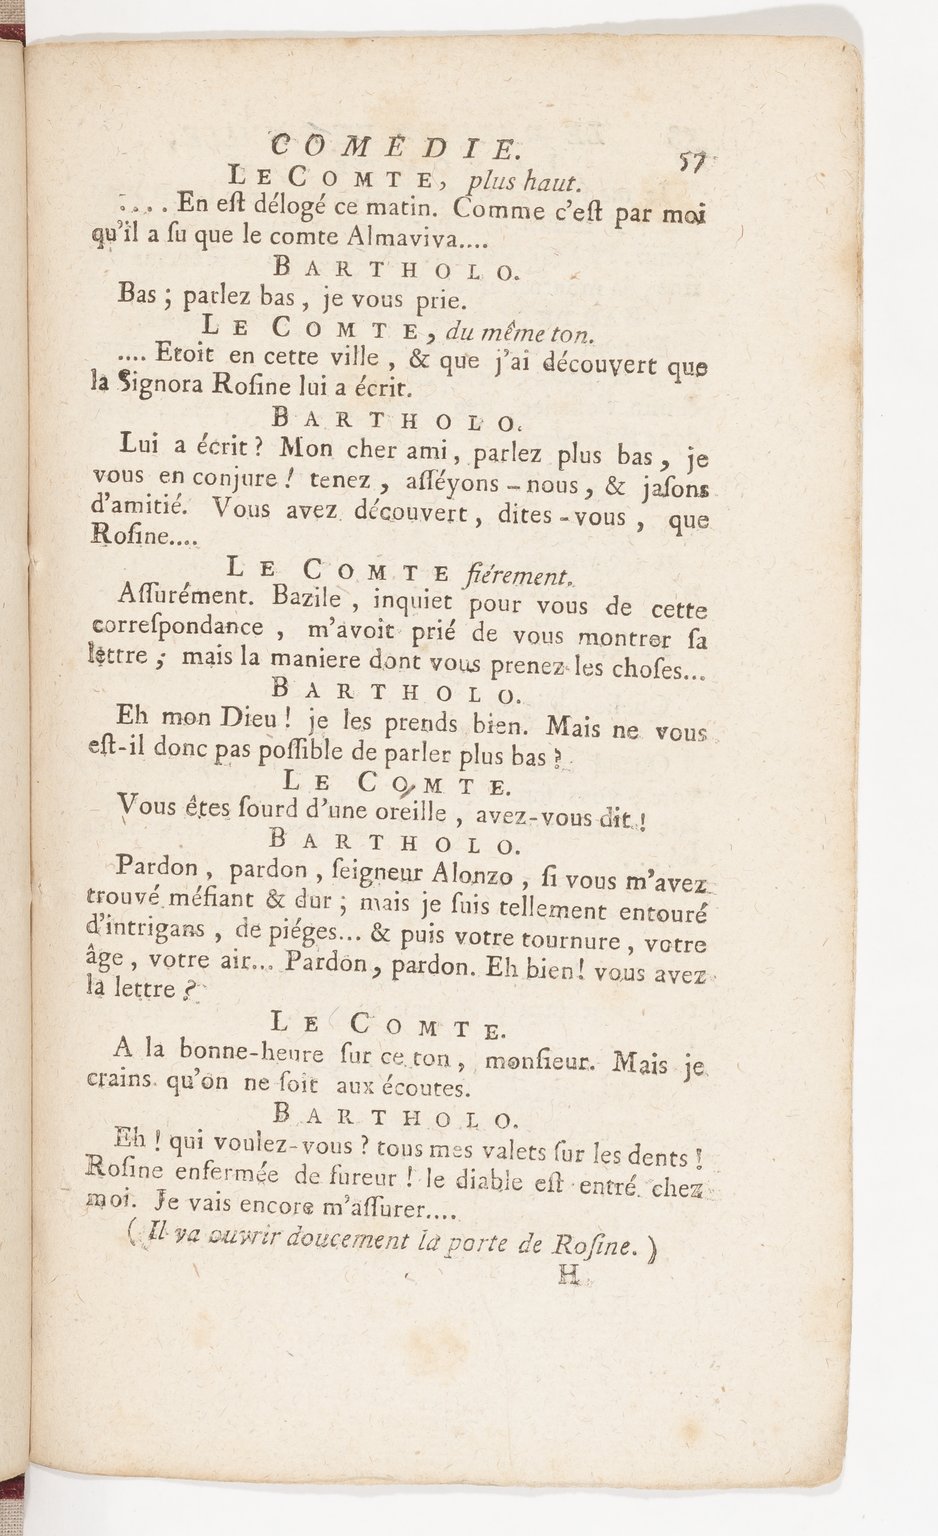 COMÉDIE.
57
LE COMTE, plus haut.
.... En eſt délogé ce matin. Comme c'eſt par moi
qu'il a ſu que le comte Almaviva....
BARTHOLO.
Bas ; parlez bas, je vous prie.
LE COMTE, du même ton.
.... Etoit en cette ville, & que j'ai découvert que
la Signora Roſine lui a écrit.
BARTHOLO.
Lui a écrit ? Mon cher ami, parlez plus bas, je
vous en conjure ! tenez, aſſéyons-nous, & jaſons
d'amitié. Vous avez découvert, dites-vous, que
Roſine....
LE COMTE fiérement.
Aſſurément. Bazile, inquiet pour vous de cette
correſpondance, m'avoit prié de vous montrer ſa
lettre ; mais la maniere dont vous prenez les choſes...
BARTHOLO.
Eh mon Dieu ! je les prends bien. Mais ne vous
eſt-il donc pas poſſible de parler plus bas ?
LE COMTE.
Vous êtes ſourd d'une oreille, avez-vous dit !
BARTHOLO.
Pardon, pardon, ſeigneur Alonzo, ſi vous m'avez
trouvé méfiant & dur ; mais je ſuis tellement entouré
d'intrigans, de piéges... & puis votre tournure, votre
âge, votre air... Pardon, pardon. Eh bien ! vous avez
la lettre ?
LE COMTE.
A la bonne-heure ſur ce ton, monſieur. Mais je
crains qu'on ne ſoit aux écoutes.
BARTHOLO.
Eh ! qui voulez-vous ? tous mes valets ſur les dents !
Roſine enfermée de fureur ! le diable eſt entré chez
moi. Je vais encore m'aſſurer....
( Il va ouvrir doucement la porte de Roſine. )
H